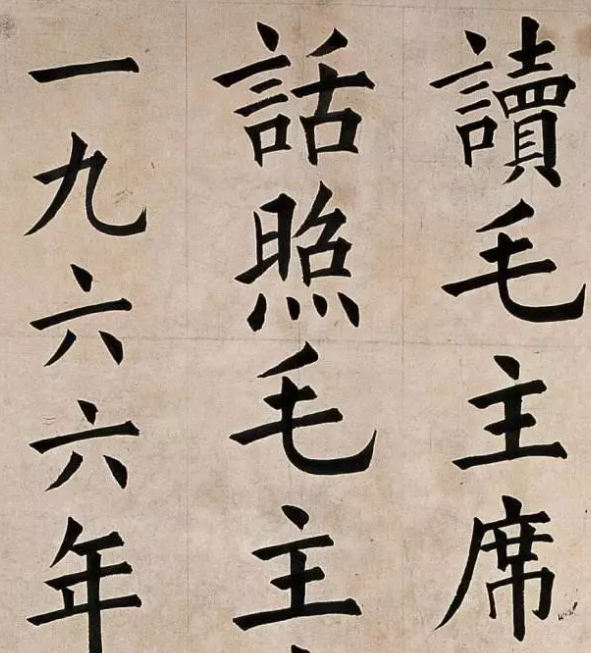 讀毛主席
話照毛主
一九六六年